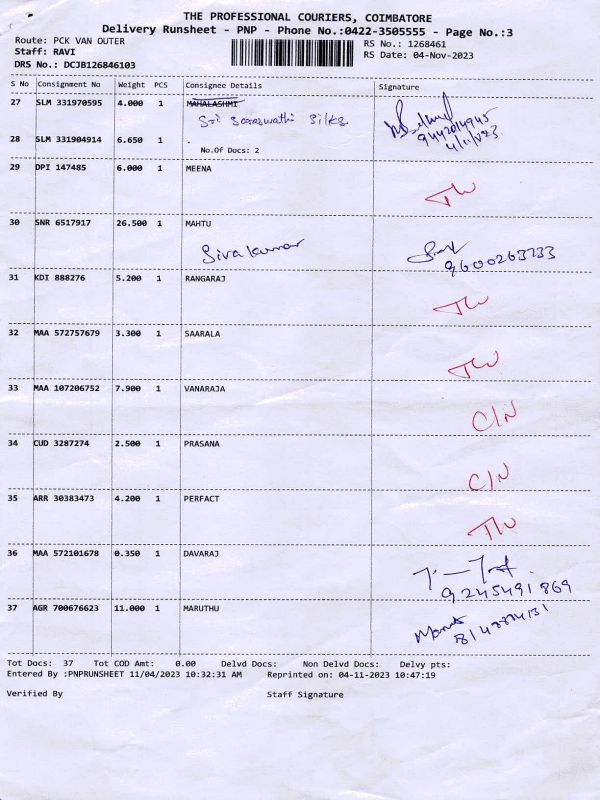 THE PROFESSIONAL COURIERS, COIMBATORE
Delivery Runsheet - PNP - Phone No.:0422-3505555 - Page No.:3
Route: PCK VAN OUTER
RS No.: 1268461
Staff: RAVI
RS Date: 04-Nov-2023
DRS No.: DCJB126846103
S No Consignment No Weight PCS Consignee Details Signature
27 SLM 331970595 4.000 1 MAHALASHMI
Sri Saraswathi Silks
9442014945
4/11/023
28 SLM 331904914 6.650 1 .
No.Of Docs: 2
29 DPI 147485 6.000 1 MEENA
30 SNR 6517917 26.500 1 MAHTU
Sivakumar
9600263733
31 KDI 888276 5.200 1 RANGARAJ
32 MAA 572757679 3.300 1 SAARALA
33 MAA 107206752 7.900 1 VANARAJA
C/N
34 CUD 3287274 2.500 1 PRASANA
C/N
35 ARR 30383473 4.200 1 PERFACT
36 MAA 572101678 0.350 1 DAVARAJ
9245491869
37 AGR 700676623 11.000 1 MARUTHU
Tot Docs: 37 Tot COD Amt: 0.00 Delvd Docs: Non Delvd Docs: Delvy pts:
Entered By :PNPRUNSHEET 11/04/2023 10:32:31 AM Reprinted on: 04-11-2023 10:47:19
Verified By Staff Signature